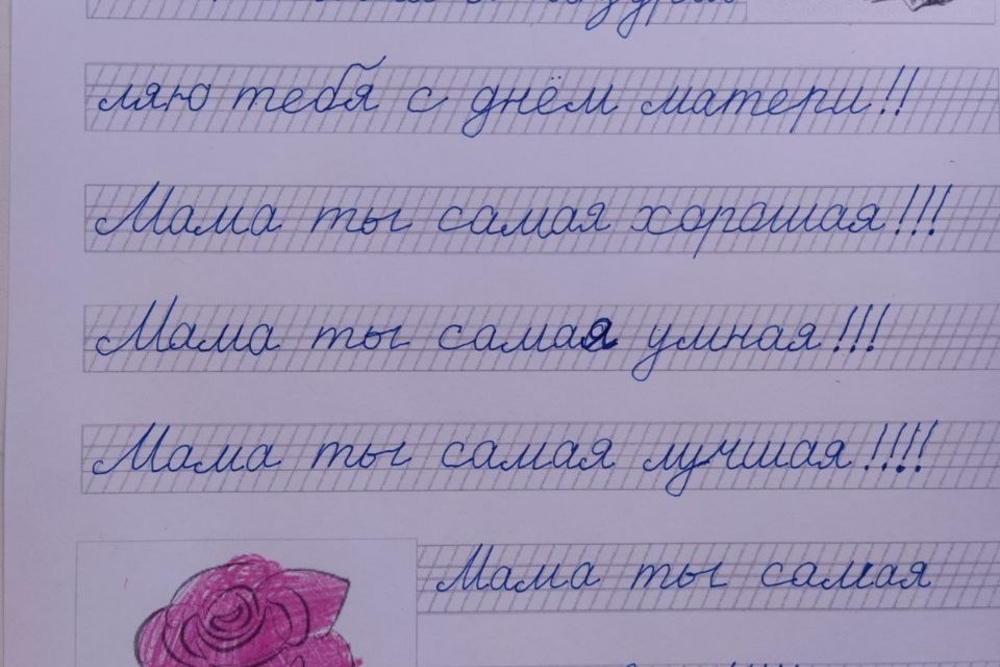 ляю тебя с днём матери!!
Мама ты самая хорошая!!!
Мама ты самая умная!!!
Мама ты самая лучшая!!!!
Мама ты самая